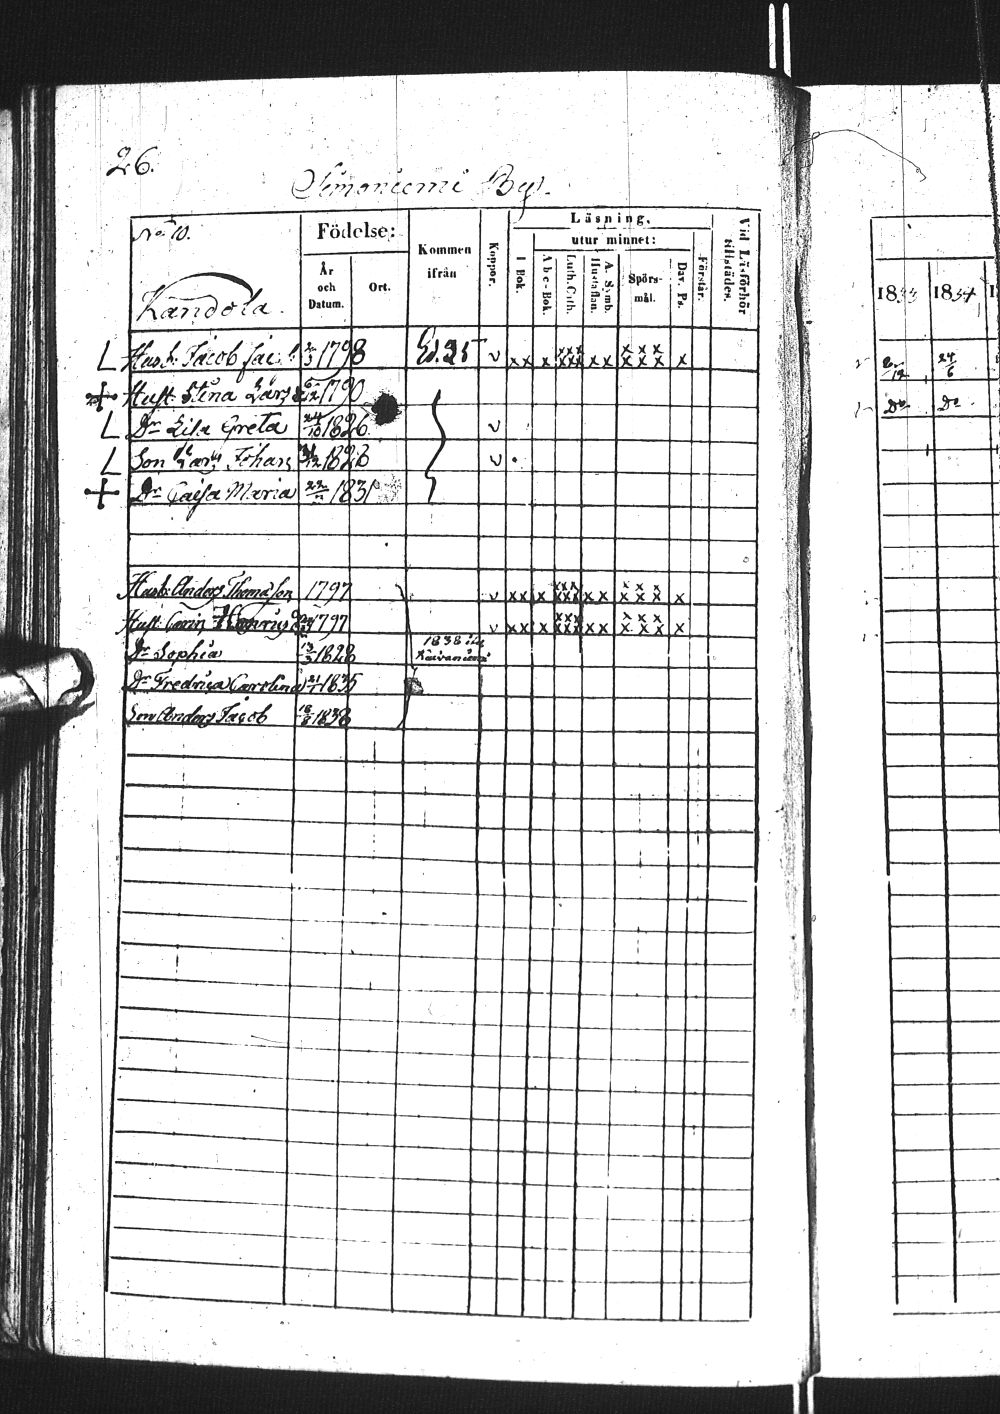 26.
Simoniemi By.
No 10.
Kandola.
Födelse:
År
och
Datum.
Ort.
Kommen
ifrån
Koppor.
Läsning,
utur minnet:
I Bok.
Abc-Bok
Luth. Cath.
Hustaflan.
A. Symb.
Spörs-
mål.
Dav. Ps.
Förstår.
Vid Läsförhör
tillstädes.
1834
L Husb: Jacob Jac. 1798 v x x x x x x x x x x x x x x
+ Hust. Stina 1790
L Dr Lisa Greta 24/10 1826 v
L Son Lars Johan 1828 v
+ Dr Caisa Maria 1831
Husb: Anders Thomason 1797 v x x x x x x x x x x x x x x x
Hust. Carin 1797 v x x x x x x x x x x x x x x x
Dr Sophia 1828 1838
Dr Fredrica Carolina 21/1 1835
Son Anders Jacob 1838
24/6
Do Do